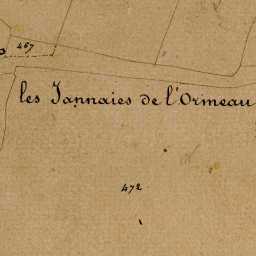 467
les Jannaies de l'Ormeau
472